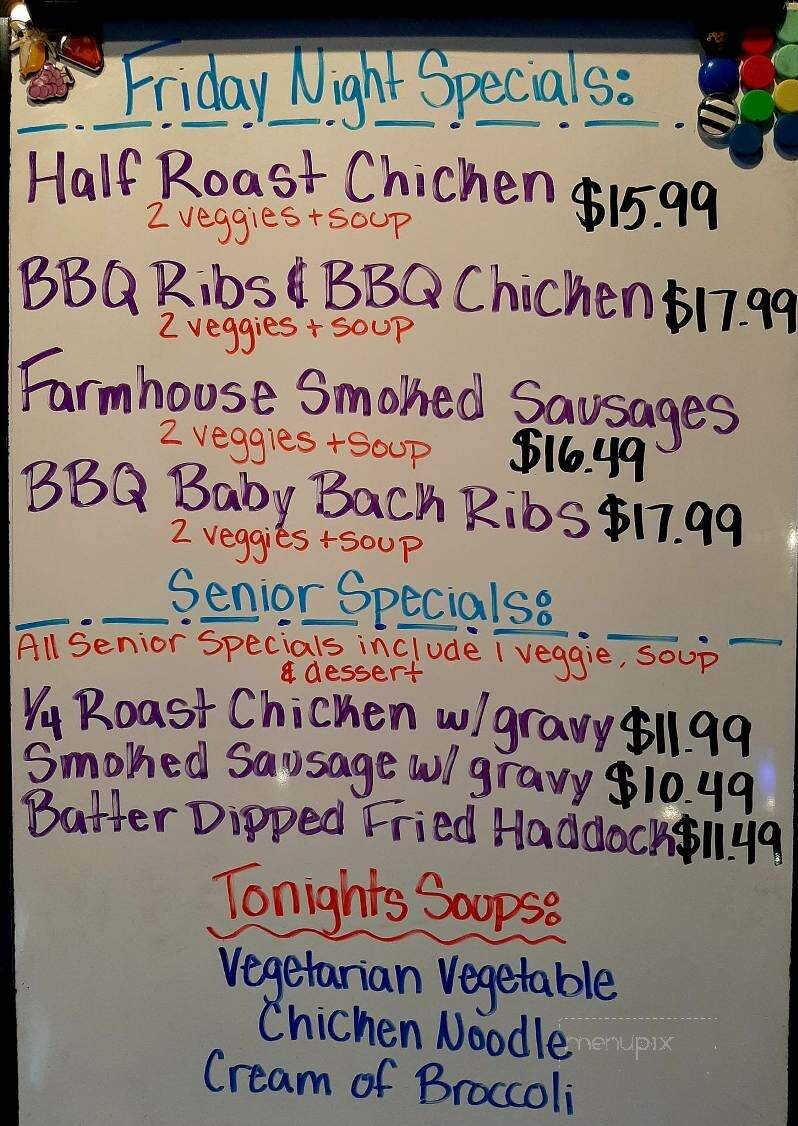 Friday Night Specials:
Half Roast Chicken $15.99
2 veggies + soup
BBQ Ribs & BBQ Chicken $17.99
2 veggies + soup
Farmhouse Smoked Sausages
2 veggies + soup $16.49
BBQ Baby Back Ribs $17.99
2 veggies + soup
Senior Specials:
All Senior Specials include 1 veggie, soup
& dessert
1/4 Roast Chicken w/ gravy $11.99
Smoked Sausage w/ gravy $10.49
Batter Dipped Fried Haddock $11.49
Tonights Soups:
Vegetarian Vegetable
Chicken Noodle
menupix
Cream of Broccoli